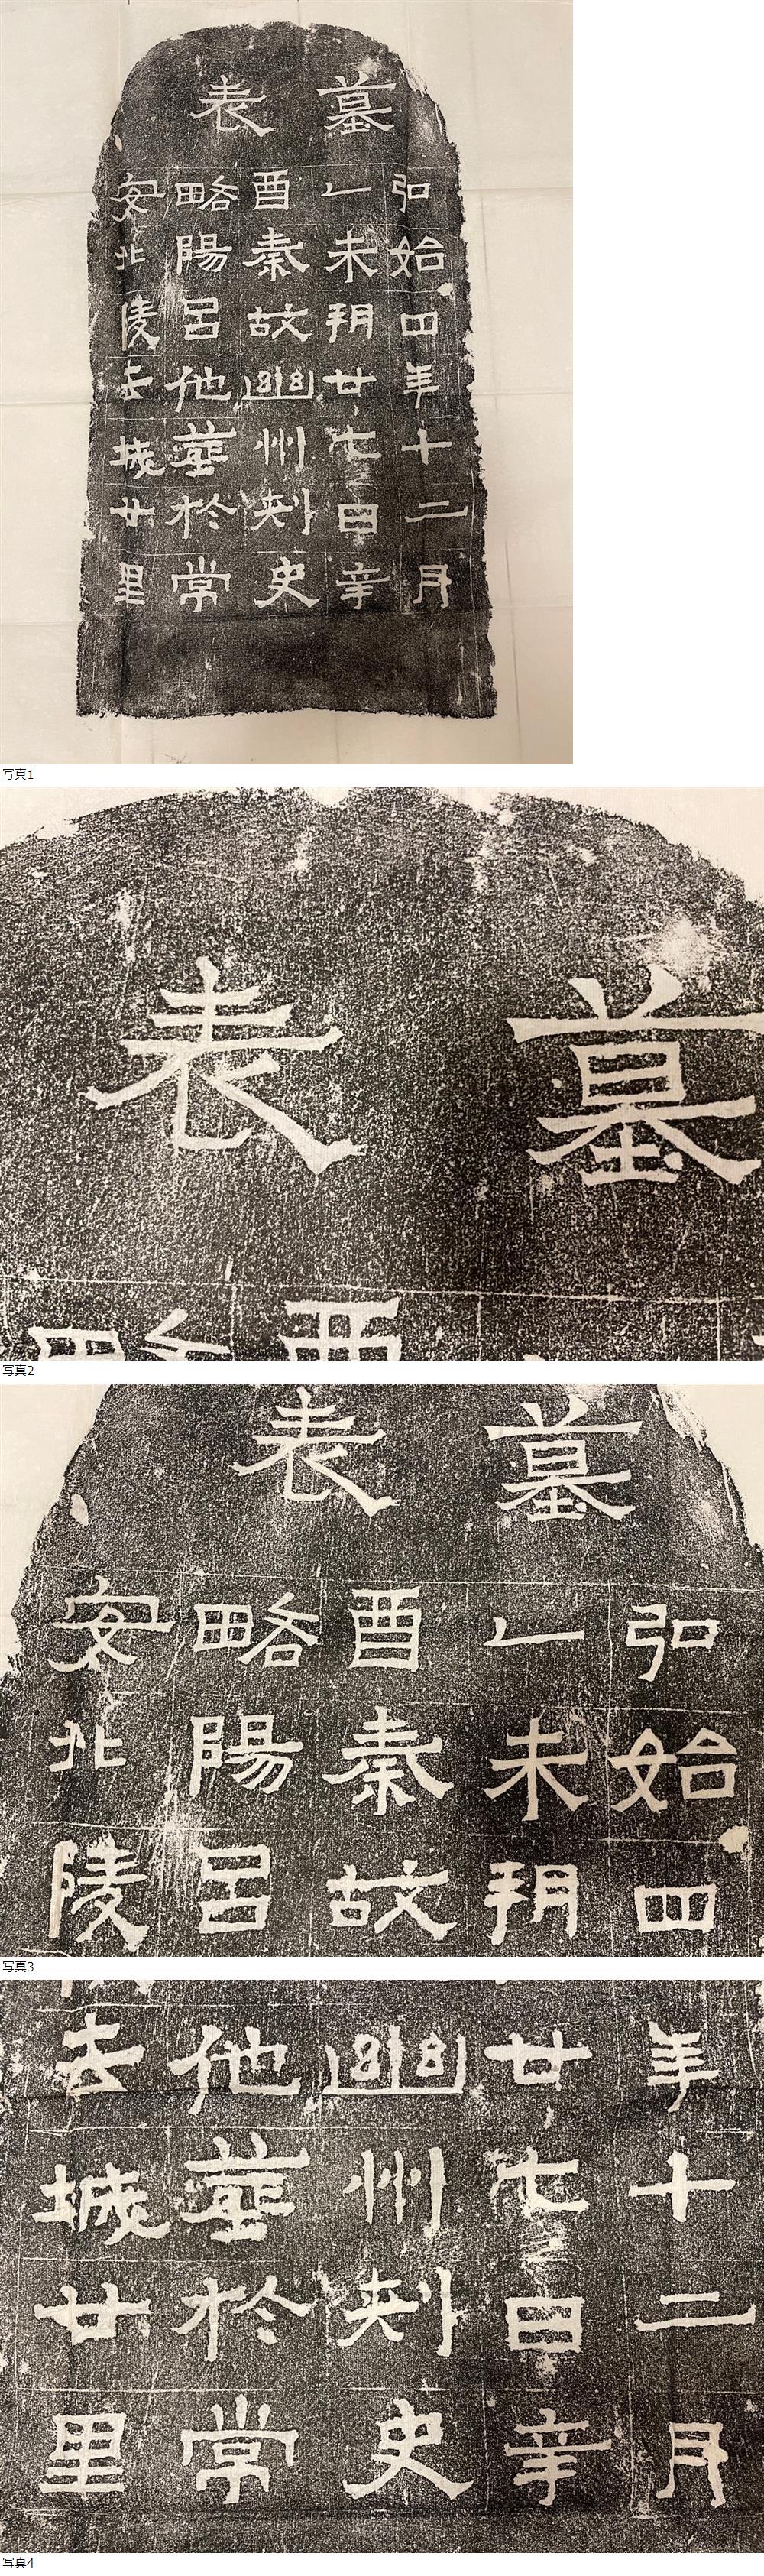 墓表
弘始四年十二月
乙未朔廿七日辛
酉秦故幽州刺史
略陽呂他葬於常
安北陵去城廿里
写真1
墓表
写真2
墓表
弘始四
乙未朔
酉秦故
略陽呂
安北陵
写真3
年十二月
廿七日辛
幽州刺史
他葬於常
去城廿里
写真4